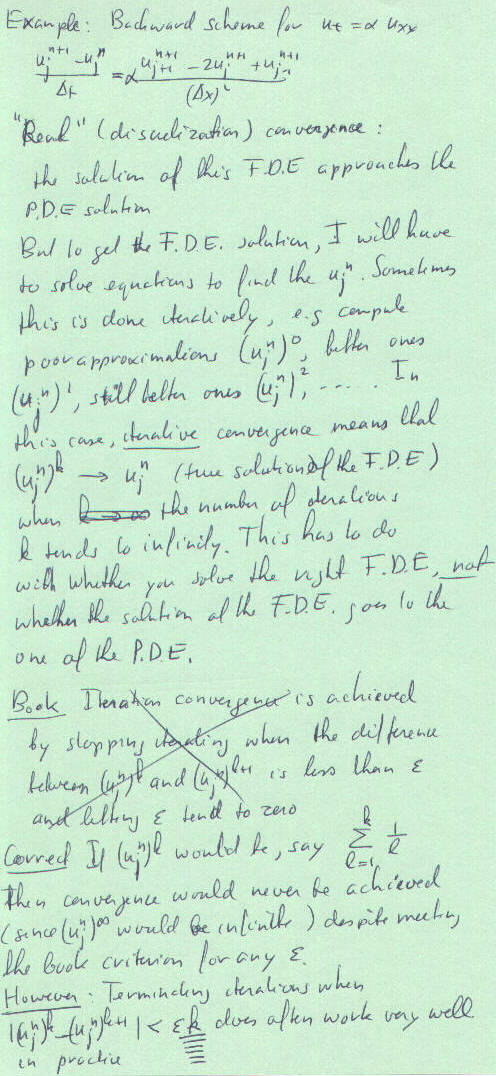 Example: Backward scheme for u_t = α u_xx
(u_j^{n+1} - u_j^n) / Δt = α (u_{j+1}^{n+1} - 2u_j^{n+1} + u_{j-1}^{n+1}) / (Δx)²
"Real" (discretization) convergence:
the solution of this F.D.E approaches the
P.D.E solution
But to get the F.D.E. solution, I will have
to solve equations to find the u_j^n. Sometimes
this is done iteratively, e.g compute
poor approximations (u_j^n)^0, better ones
(u_j^n)^1, still better ones (u_j^n)^2, ..... In
this case, iterative convergence means that
(u_j^n)^k → u_j^n (true solution of the F.D.E)
when the number of iterations
k tends to infinity. This has to do
with whether you solve the right F.D.E, not
whether the solution of the F.D.E. goes to the
one of the P.D.E.
Book Iteration convergence is achieved
by stopping iterating when the difference
between (u_j^n)^k and (u_j^n)^{k+1} is less than ε
and letting ε tend to zero
Correct If (u_j^n)^k would be, say Σ_{l=1}^{k} 1/l
then convergence would never be achieved
(since (u_j^n)^∞ would be infinite) despite meeting
the book criterion for any ε.
However: Terminating iterations when
|(u_j^n)^k - (u_j^n)^{k+1}| < εk does often work very well
in practice